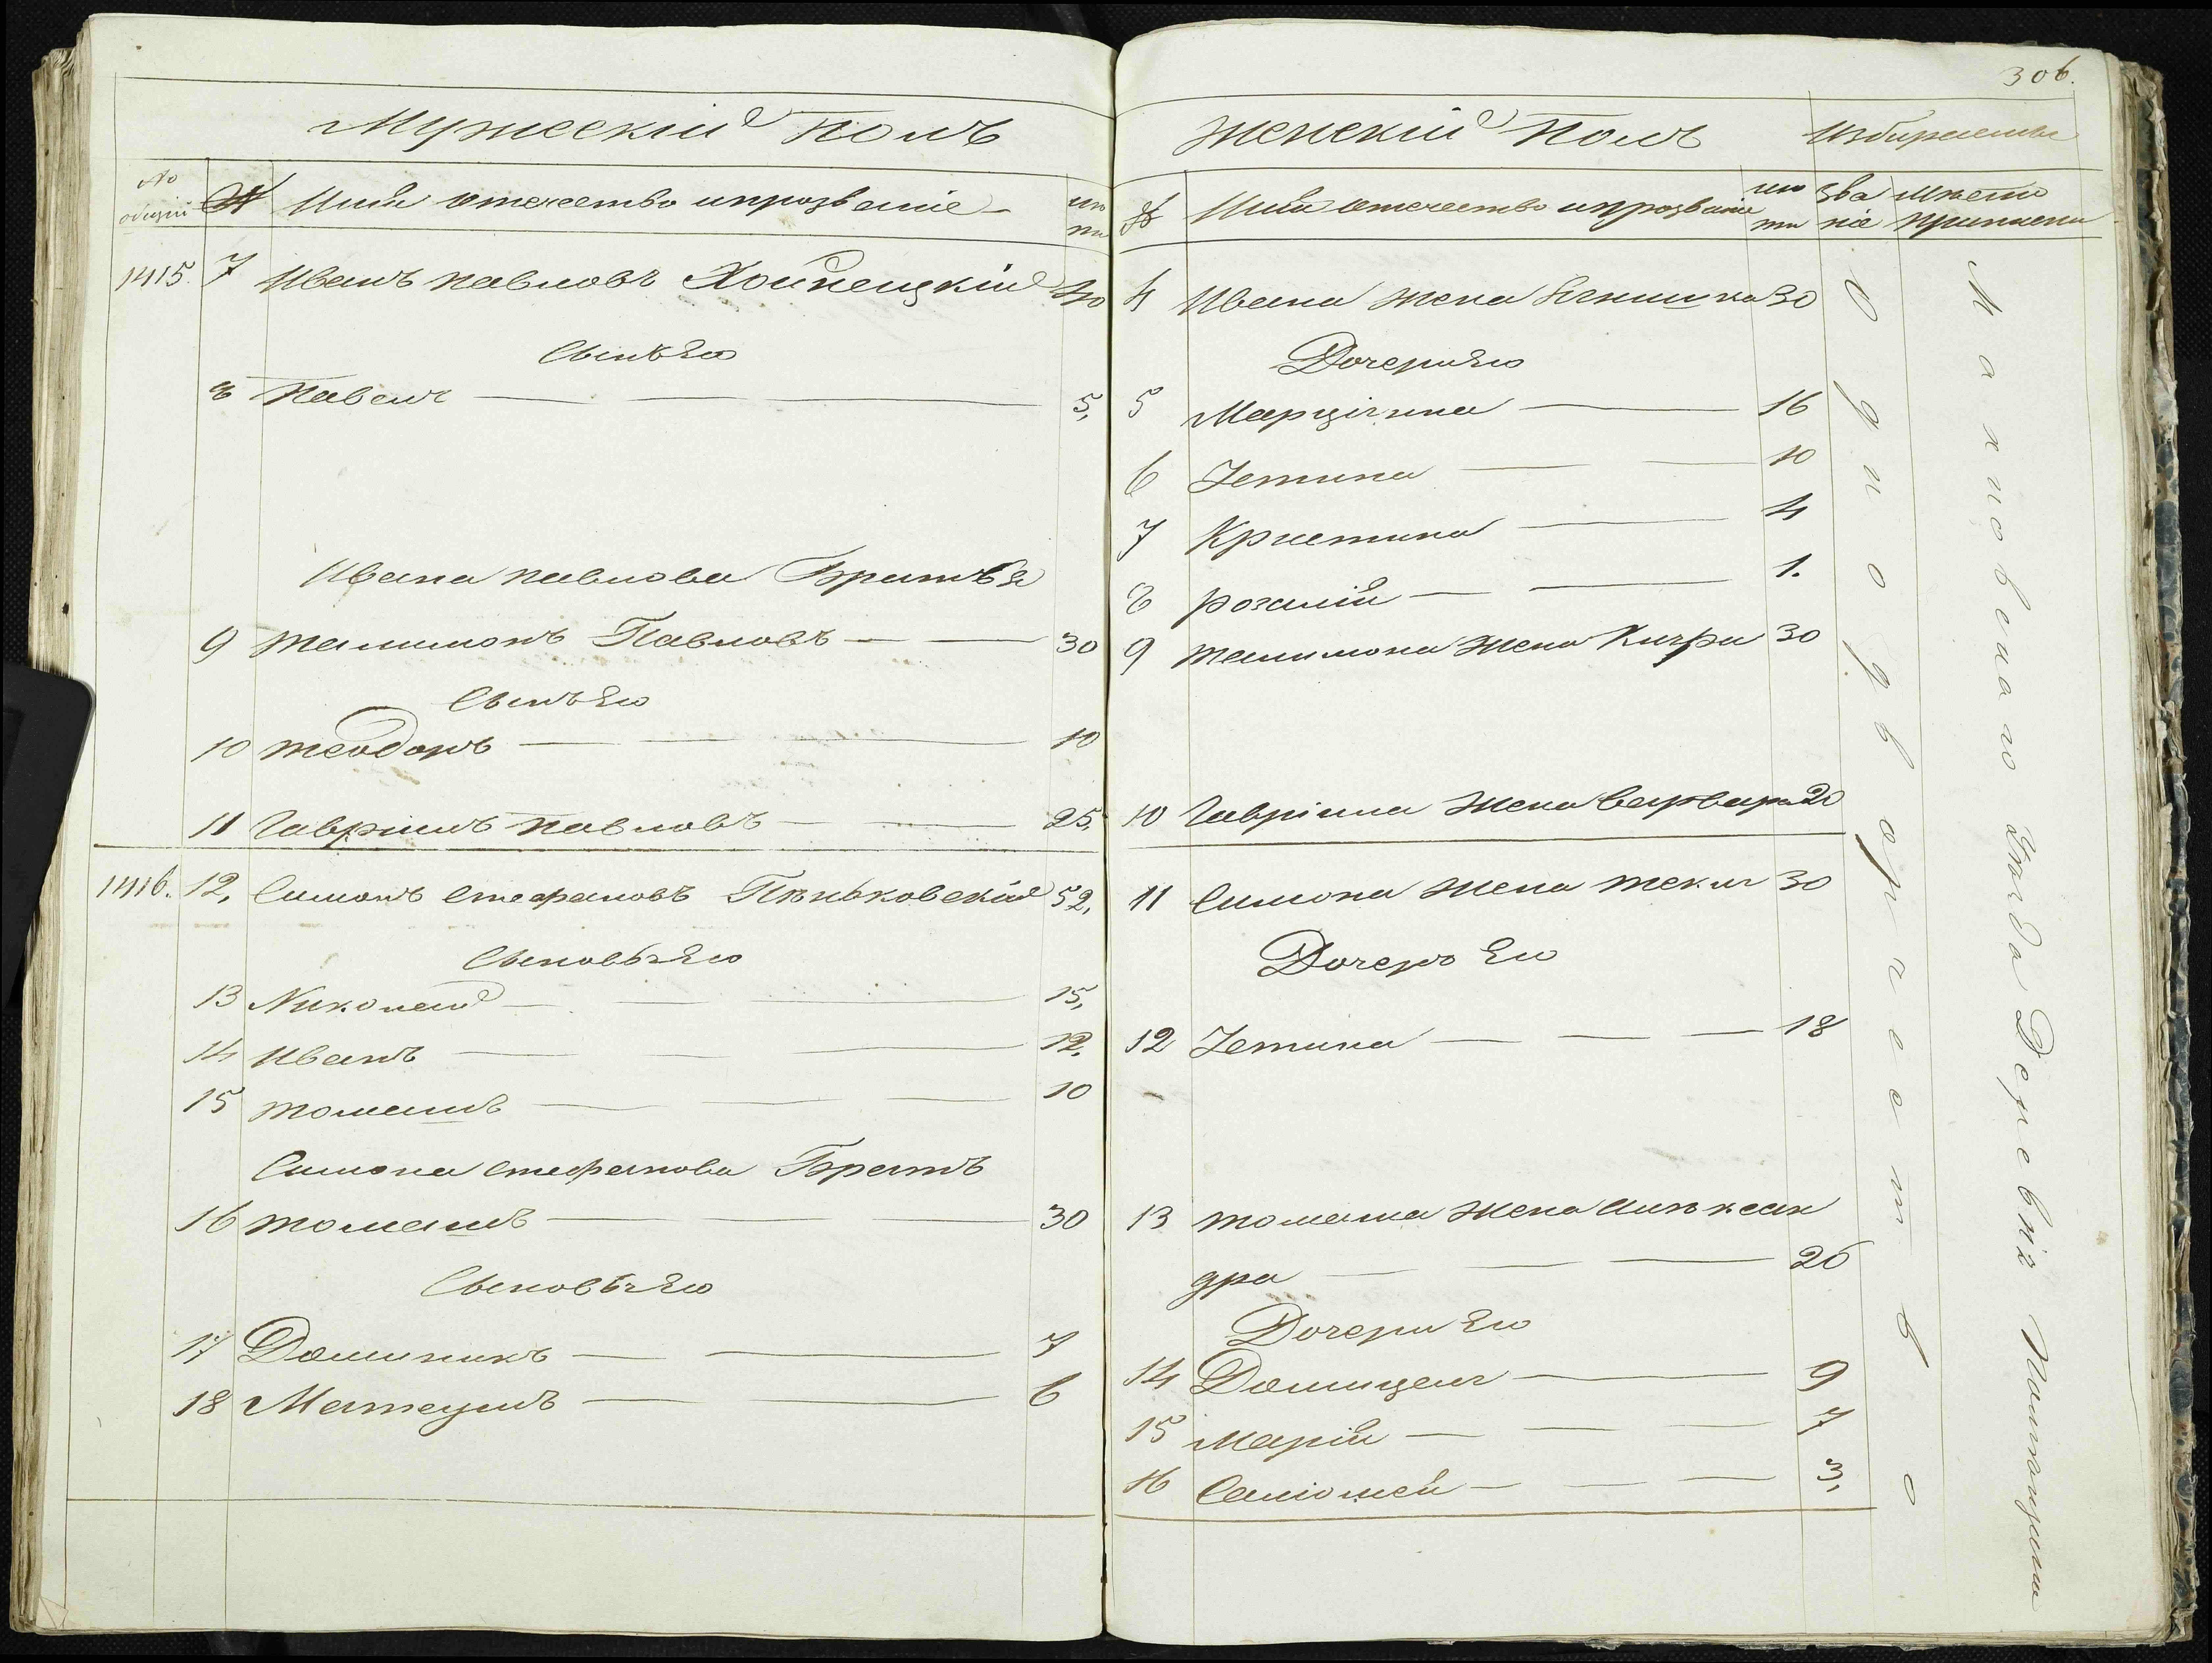 306.
Мужескій Полъ
№ общій № Имя отечество и прозваніе лѣта
1415. 7 Иванъ Павловъ Хойнецкій 40
Сынъ Его
8 Павелъ 5,
Ивана Павлова Братья
9 Талимонъ Павловъ 30
Сынъ Его
10 Теодоръ 10
11 Гавріилъ Павловъ 25,
1416. 12, Симонъ Стефановъ Пѣньковскій 52,
Сыновья Его
13 Николай 15,
14 Иванъ 12,
15 Томашъ 10
Симона Стефанова Братъ
16 Томашъ 30
Сыновья Его
17 Доминикъ 7
18 Матеушъ 6
Женскій Полъ Избираетъ
№ Имя отечество и прозваніе лѣта званіе мѣсто приписки
4 Ивана жена 30
Дочери Его
5 Марціяна 16
6 Устина 10
7 Кристина 4
8 Розалія 1.
9 Талимона жена 30
10 Гавріила жена Варвара 20
11 Симона жена Текля 30
Дочерь Его
12 Устина 18
13 Томаша жена Алѣксан
дра 26
Дочери Его
14 Домицеля 9
15 Марія 7
16 Саломея 3,
Однодворчество
Махновскаго Уѣзда Деревнѣ